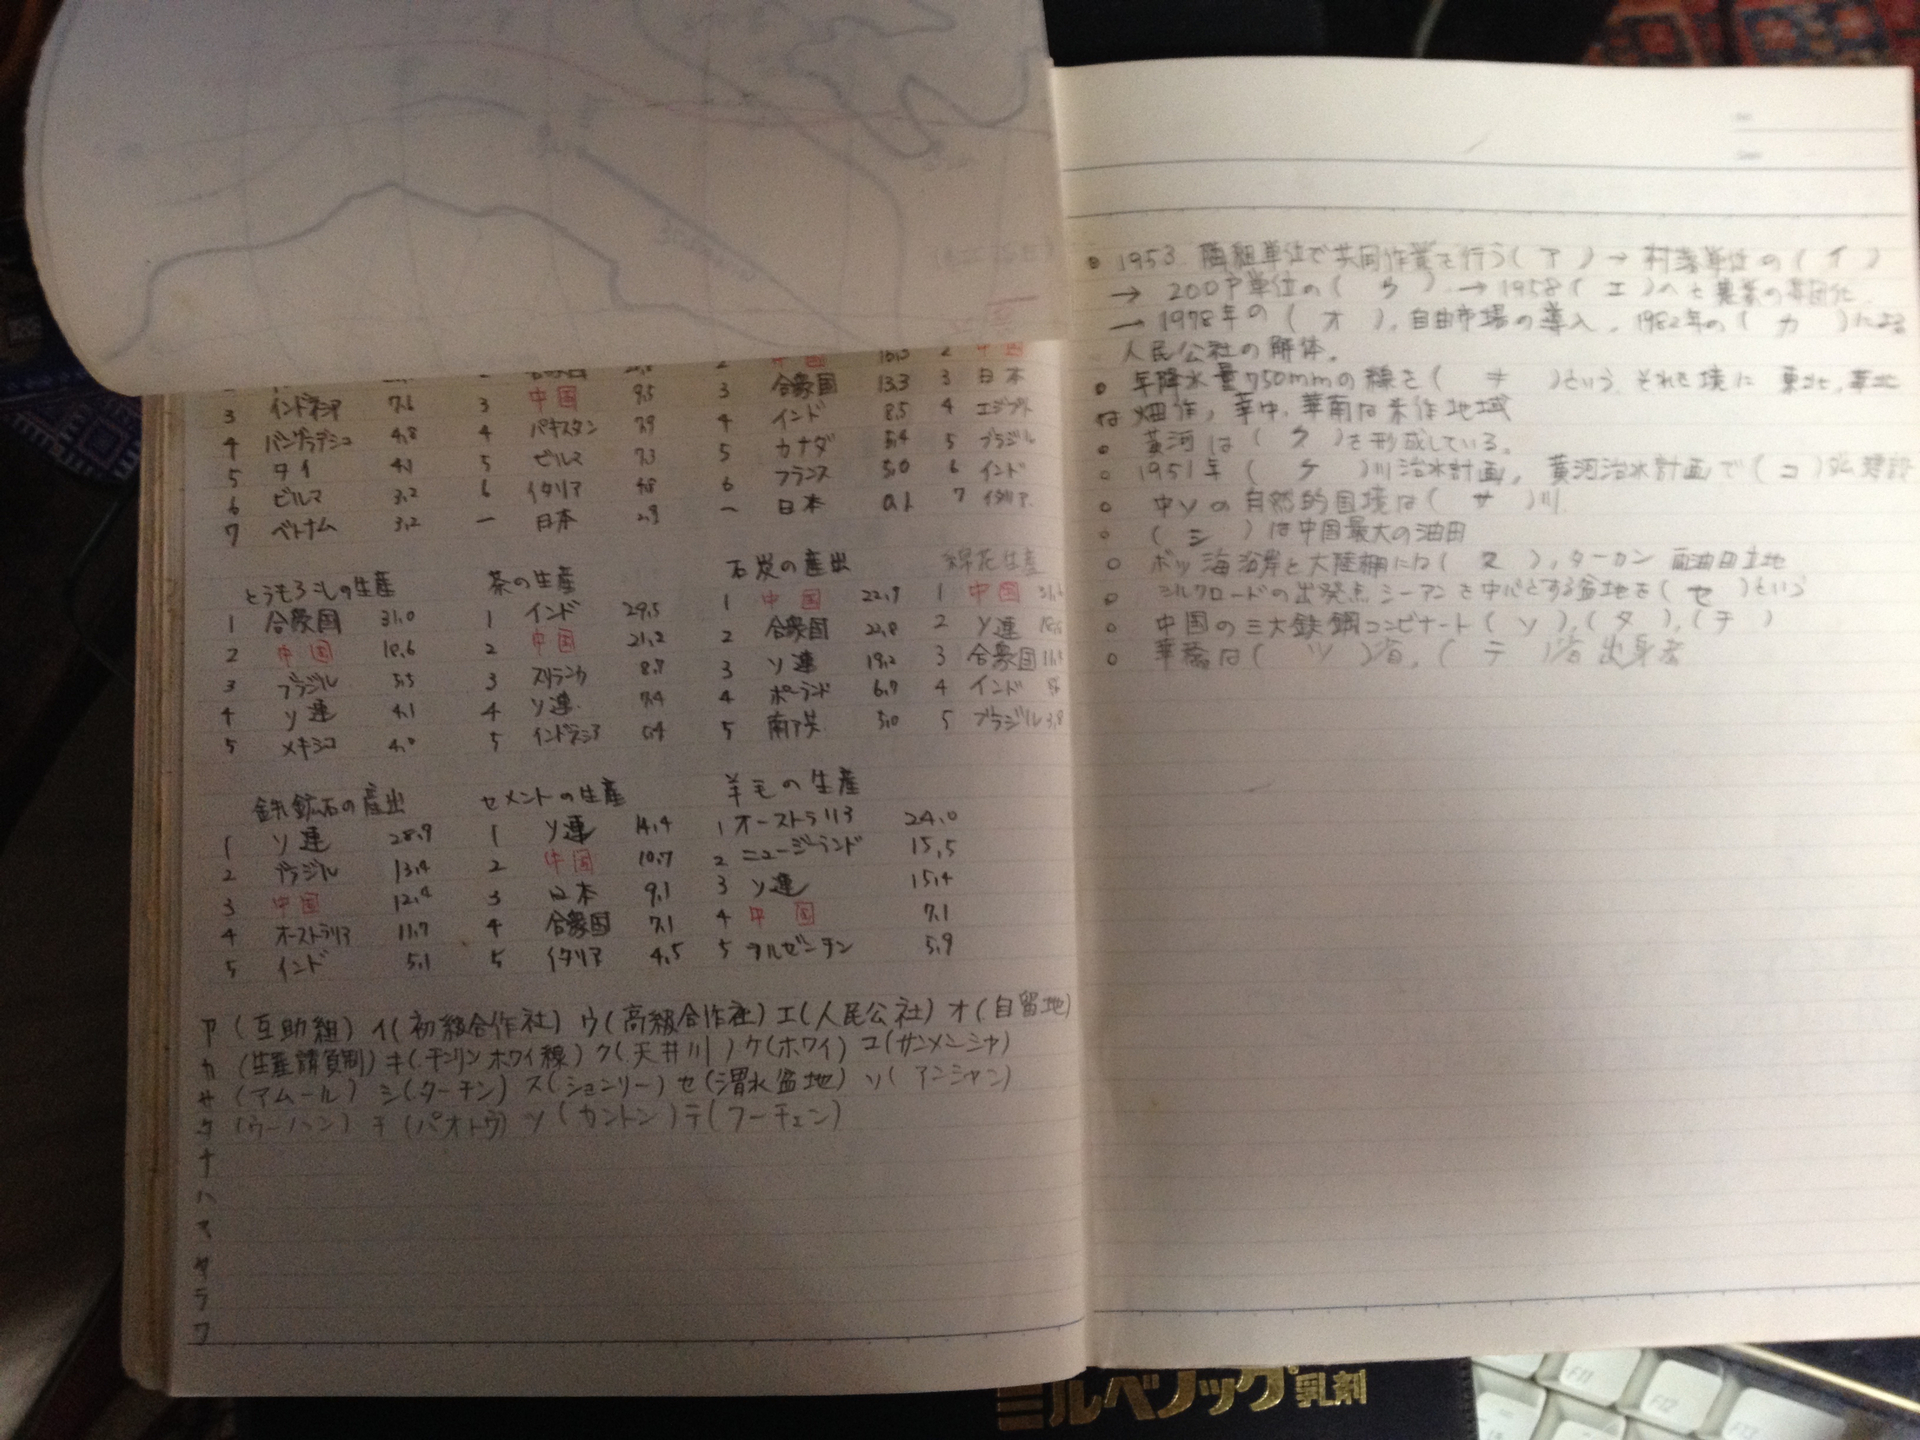 中国 16.3 2 中国
中国 9.5 3 合衆国 13.3 3 日本
3 インドネシア 7.6 3 パキスタン 7.9 4 インド 8.5 4 エジプト
4 バングラデシュ 4.8 4 ビルマ 7.3 5 カナダ 5.4 5 ブラジル
5 タイ 4.1 5 イタリア 4.8 6 フランス 5.0 6 インド
6 ビルマ 3.2 6 日本 2.9 ー 日本 0.1 7 イタリア
7 ベトナム 3.2 ー
とうもろこしの生産 茶の生産 石炭の産出 綿花生産
1 合衆国 31.0 1 インド 29.5 1 中国 22.9 1 中国
2 中国 18.6 2 中国 21.2 2 合衆国 22.8 2 ソ連
3 ブラジル 5.5 3 スリランカ 8.7 3 ソ連 19.2 3 合衆国
4 ソ連 4.1 4 ソ連 7.4 4 ポーランド 6.7 4 インド
5 メキシコ 4.0 5 インドネシア 5.4 5 南ア共 5.0 5 ブラジル 3.8
鉄鉱石の産出 セメントの生産 羊毛の生産
1 ソ連 28.9 1 ソ連 14.4 1 オーストラリア 24.0
2 ブラジル 13.4 2 中国 10.7 2 ニュージーランド 15.5
3 中国 12.4 3 日本 9.1 3 ソ連 15.4
4 オーストラリア 11.7 4 合衆国 7.1 4 中国 7.1
5 インド 5.1 5 イタリア 4.5 5 アルゼンチン 5.9
ア (互助組) イ(初級合作社) ウ(高級合作社) エ(人民公社) オ(自留地)
カ (生産請負制) キ(チンリンホワイ線) ク(天井川) ケ(ホワイ) コ(サンメンシャ)
サ (アムール) シ(ターチン) ス(ションリー) セ(渭水盆地) ソ(アンシャン)
タ (ウーハン) チ(パオトウ) ツ(カントン) テ(フーチェン)
ナ
ハ
マ
ヤ
ラ
ワ
○ 1953 隣組単位で共同作業を行う( ア ) → 村落単位の( イ )
→ 200戸単位の( ウ ) → 1958( エ )へと農業の集団化
→ 1978年の( オ ),自由市場の導入,1982年の( カ )による
人民公社の解体。
○ 年降水量750mmの線を( キ )という それを境に 東北,華北
は畑作,華中,華南は米作地域
○ 黄河は( ク )を形成している。
○ 1951年( ケ )川治水計画,黄河治水計画で( コ )ダム建設
○ 中ソの自然的国境は( サ )川
○ ( シ )は中国最大の油田
○ ボッ海沿岸と大陸棚には( ス ),ターカン 両油田立地
○ シルクロードの出発点シーアンを中心とする盆地を( セ )という
○ 中国の三大鉄鋼コンビナート( ソ ),( タ ),( チ )
○ 華僑は( ツ )省,( テ )省出身者
ミルベノック乳剤
F11
F12
F13